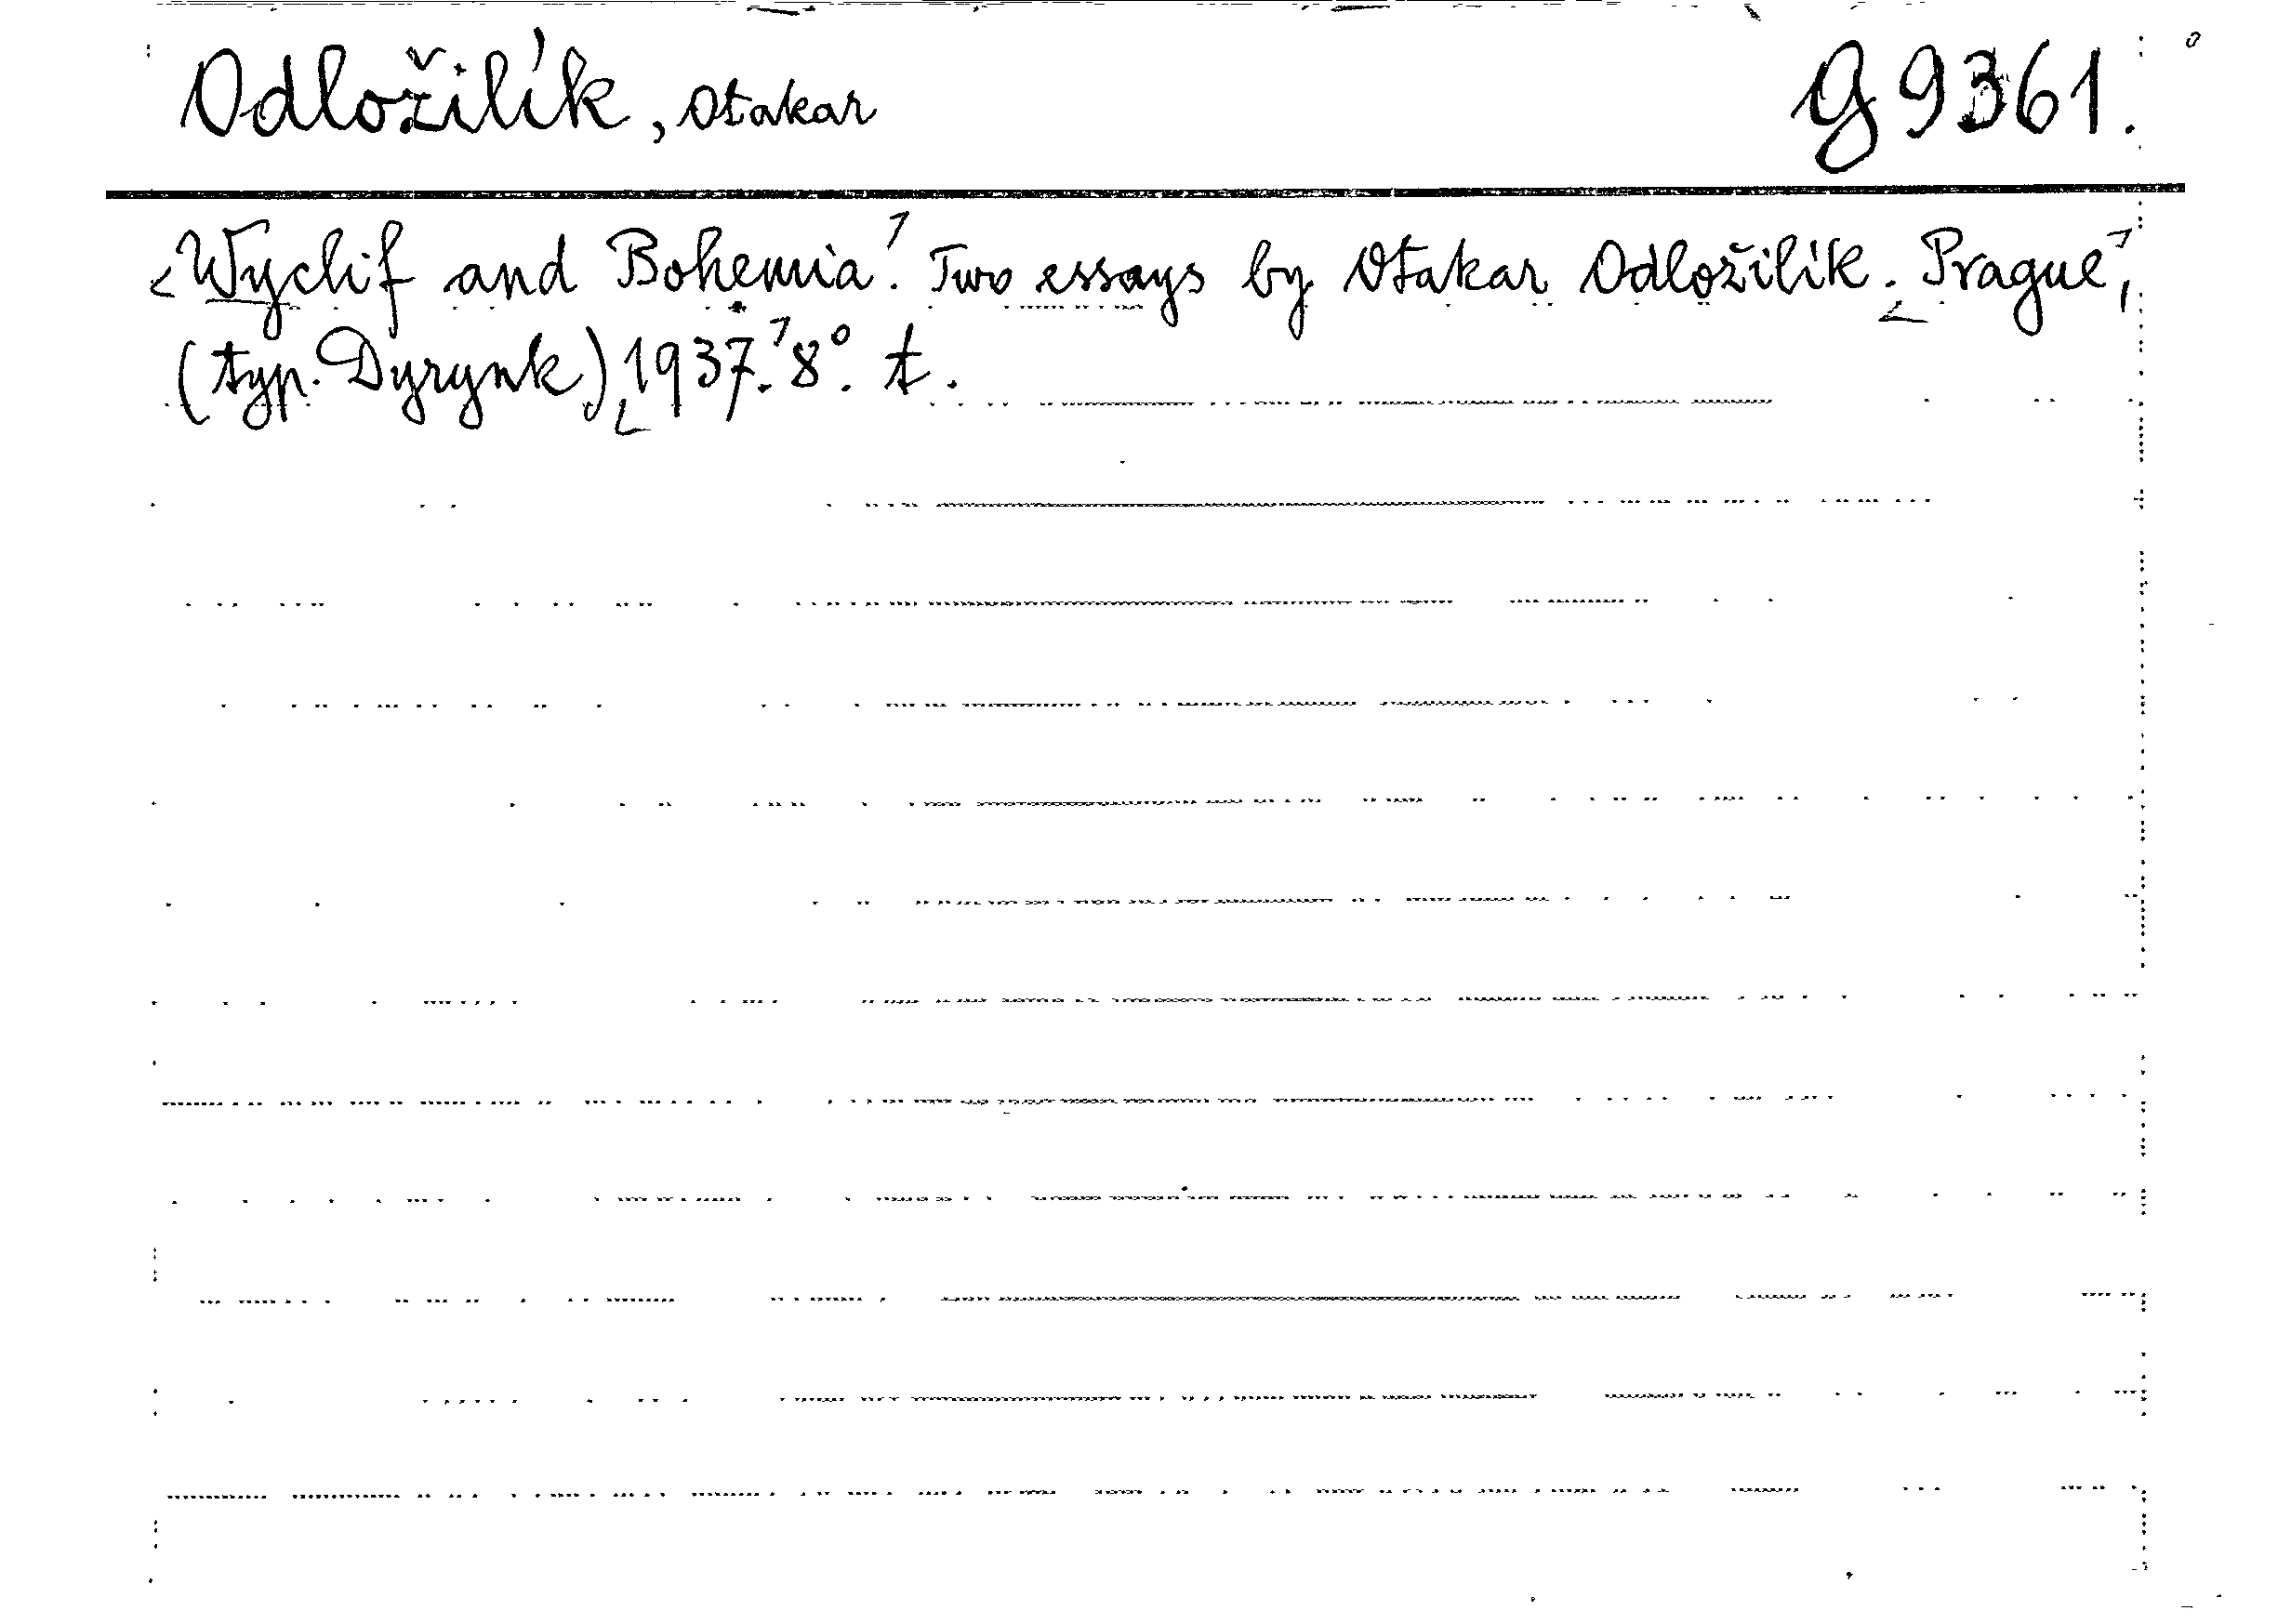 Odložilík, Otakar G 9361.
Wyclif and Bohemia. Two essays by Otakar Odložilík. Prague,
(typ. Dyrynk) 1937. 8°. t.